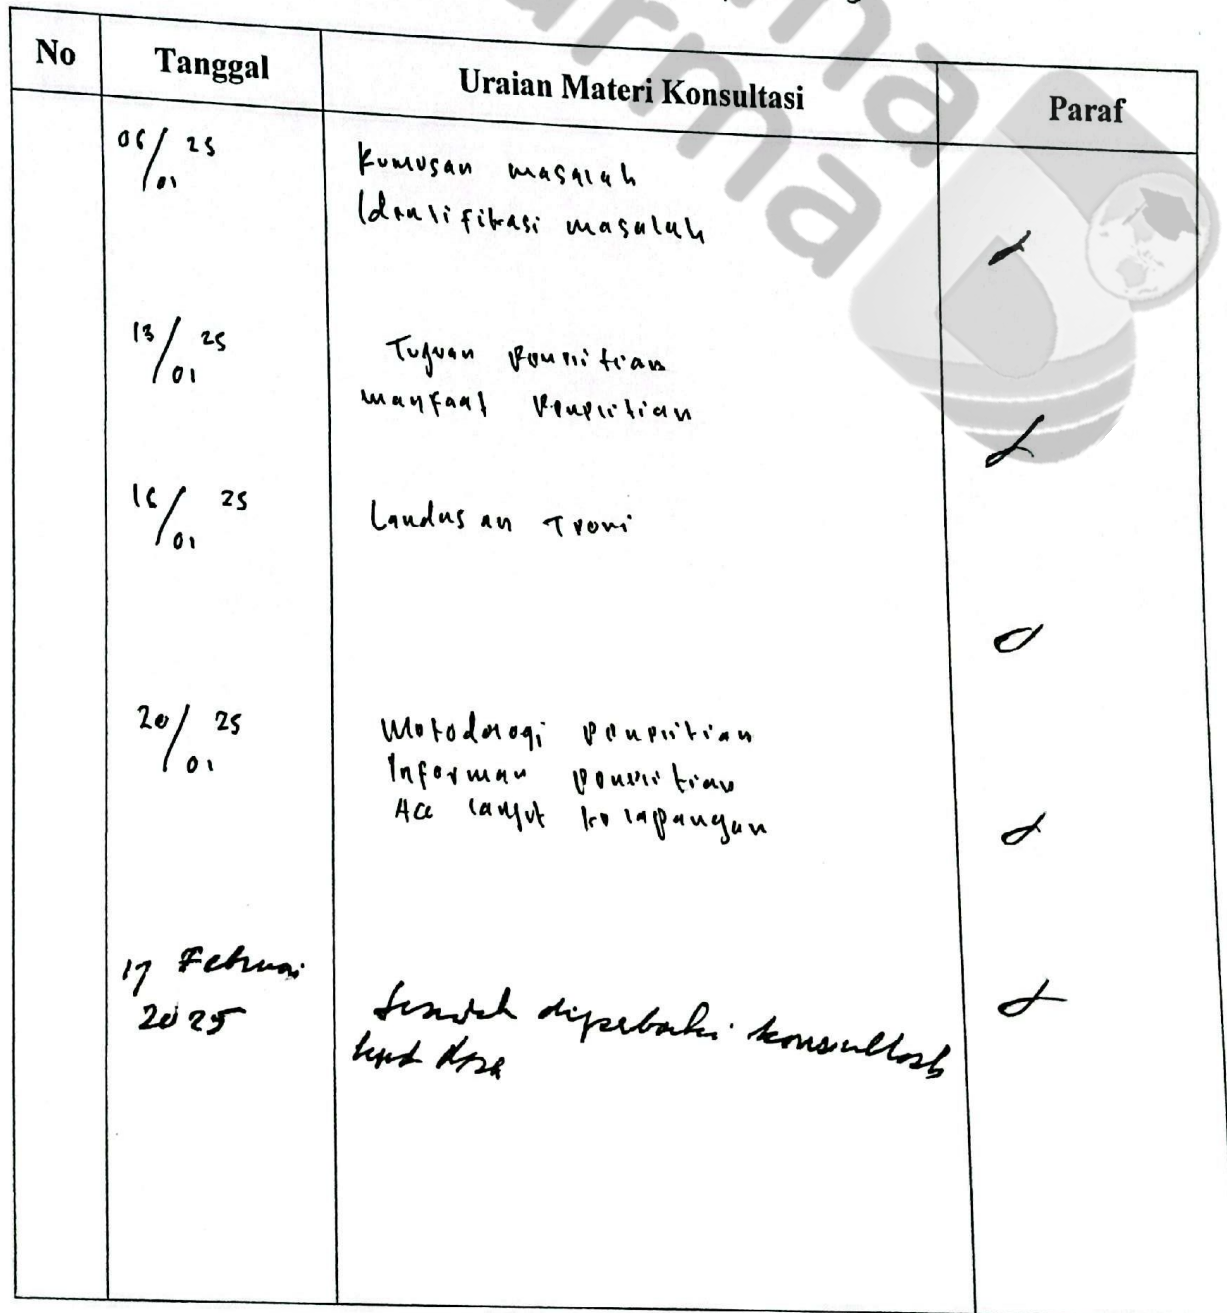 No Tanggal Uraian Materi Konsultasi Paraf
06/01 25 Rumusan masalah
Identifikasi masalah
13/01 25 Tujuan Penelitian
manfaat Penelitian
16/01 25 Landasan Teori
20/01 25 Metodologi penelitian
Informan penelitian
Acc lanjut ke lapangan
17 Februari
2025 diperbaiki konsultasi